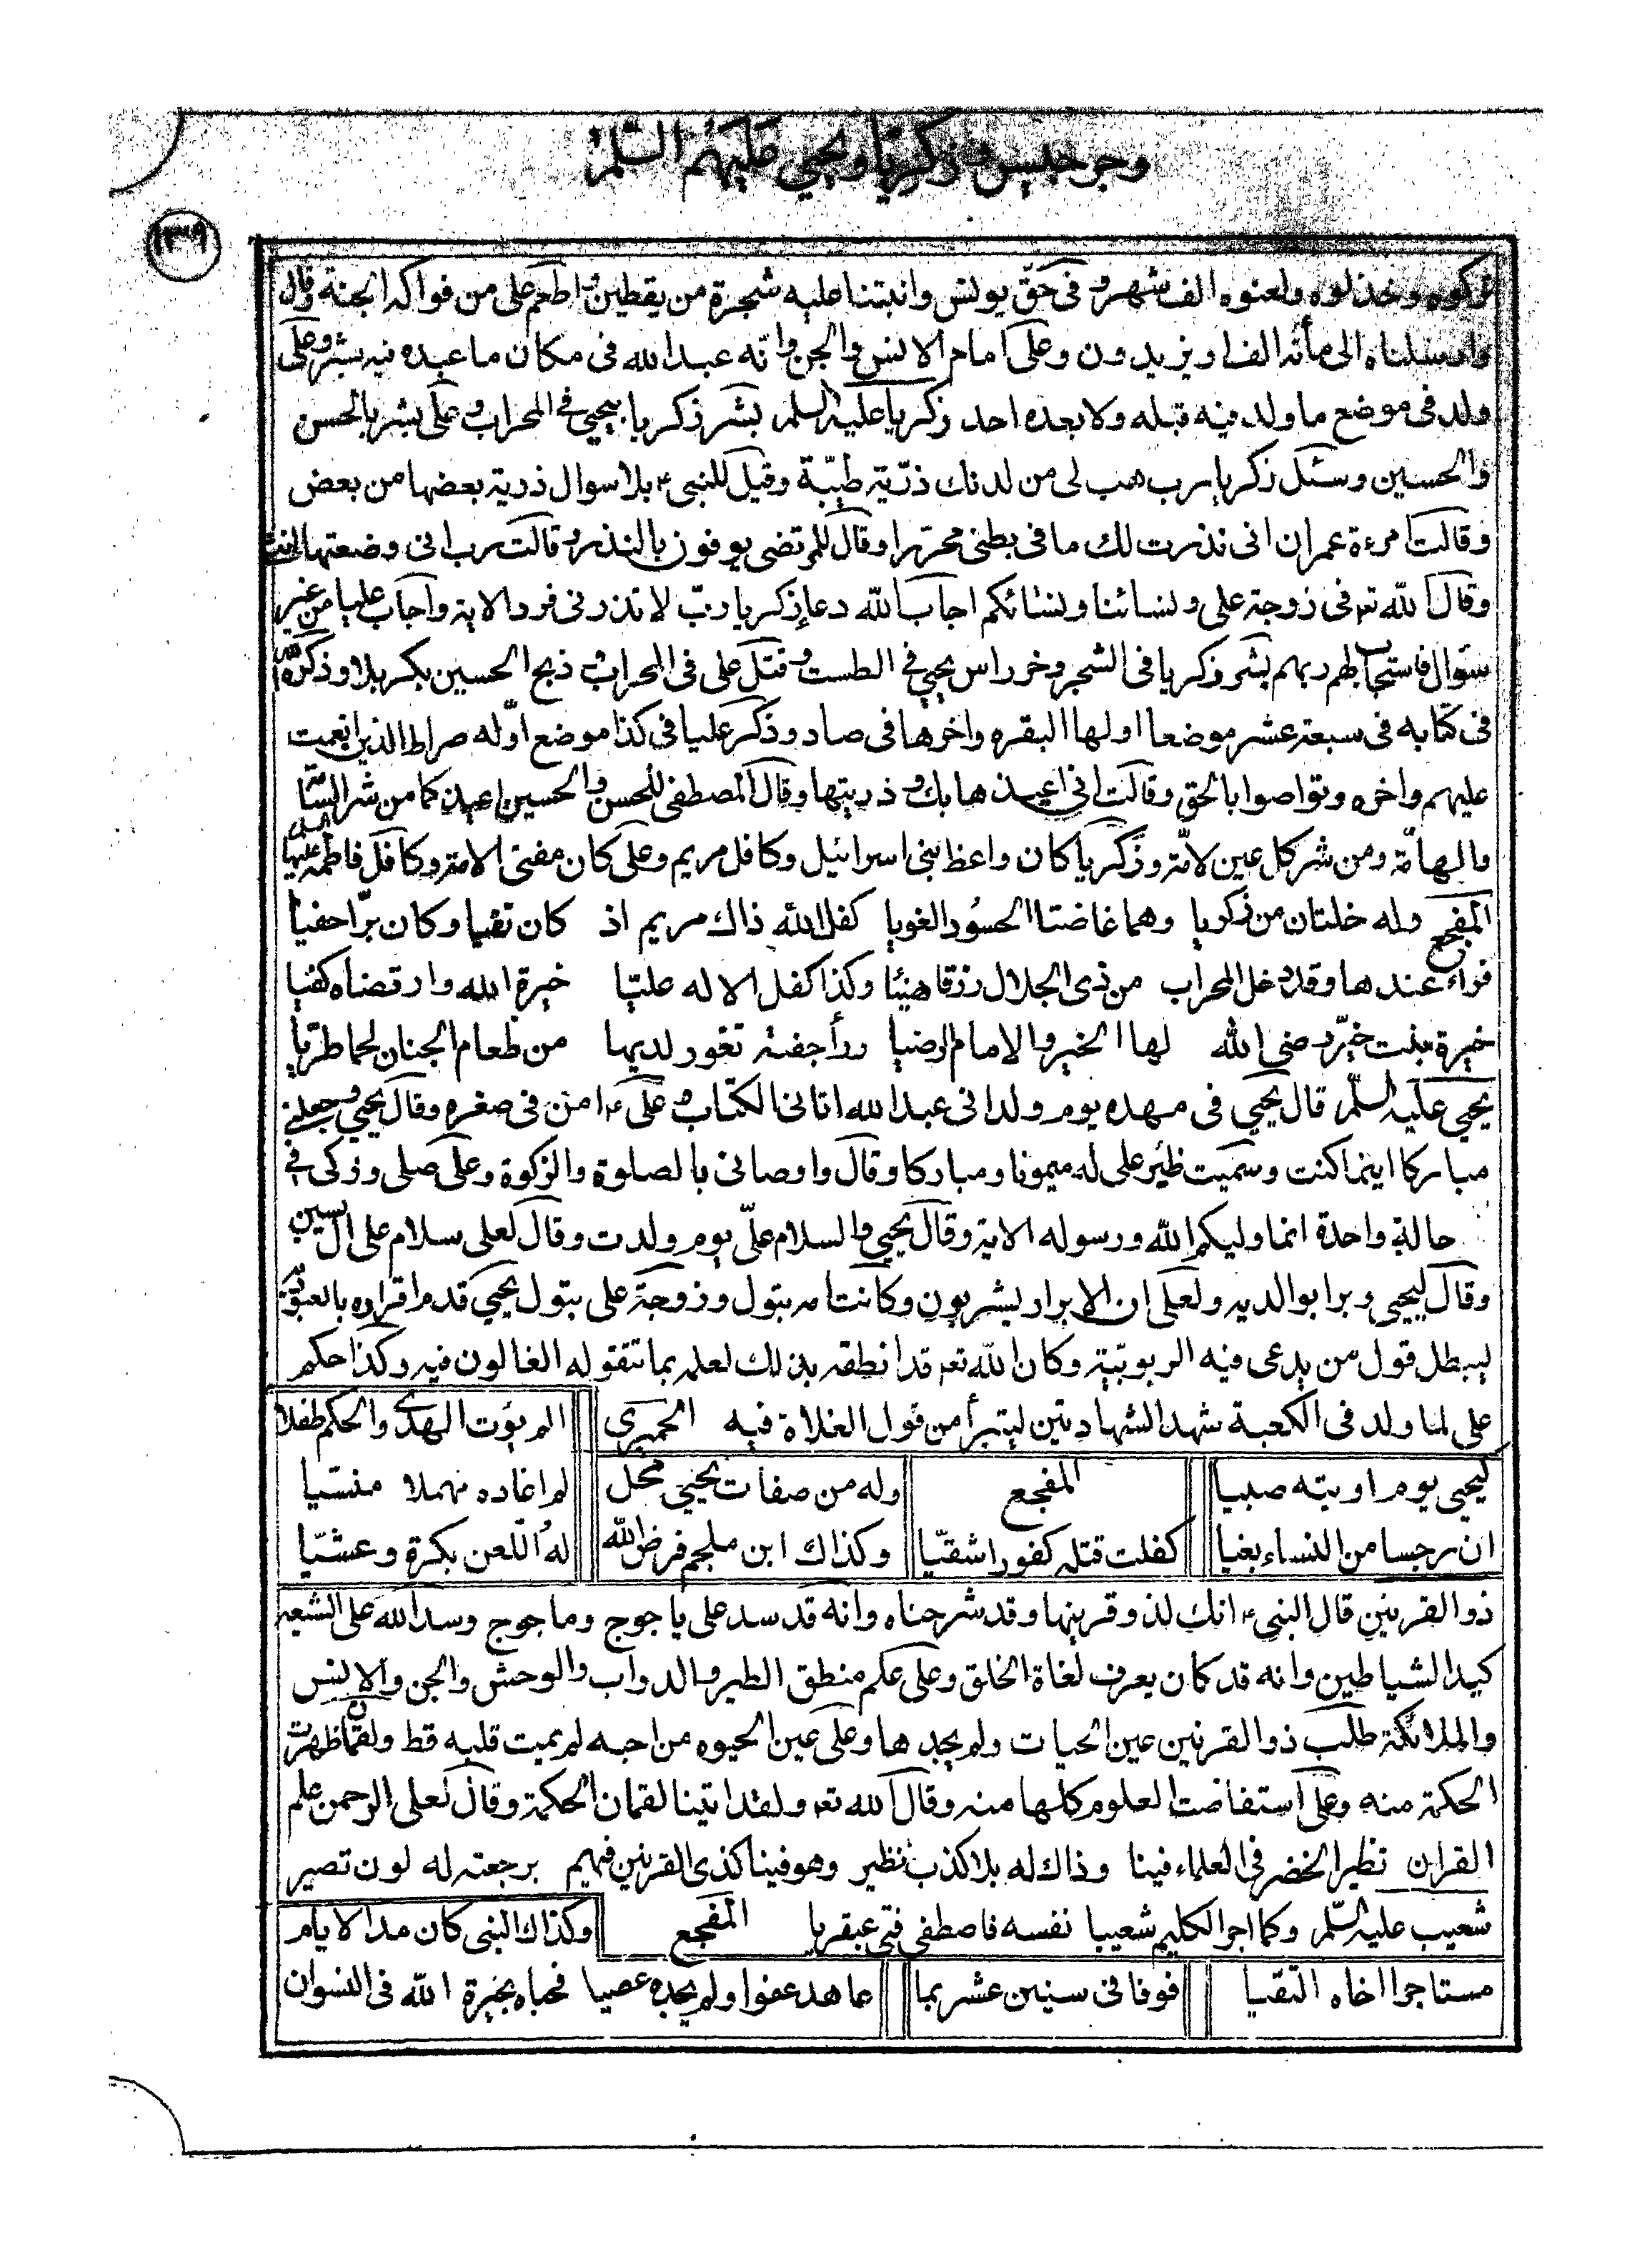 وجرجيس وزكريا ويحيى عليهم السلام
١٣٩
تركوه وخذلوه ولعنوه الف شهر و فى حق يونس وانبتنا عليه شجرة من يقطين و اطعم على من فواكه الجنة وقال
وارسلناه الى مأته الف او يزيدون وعلى امام الانس والجن وانه عبد الله فى مكان ما عبده فيه بشر وعلى
ولد فى موضع ما ولد فيه قبله ولا بعده احد زكريا عليه السلم بشر زكريا بيحيى فى المحراب و على بشر بالحسن
والحسين وسئل زكريا رب هب لى من لدنك ذرّية طيّبة وقيل للنبى ص بلا سوال ذرية بعضها من بعض
وقالت امرءة عمران انى نذرت لك ما فى بطنى محررا وقال للمرتضى يوفون بالنذر و قالت رب انى وضعتها انثى
وقال الله تعـ فى زوجة على ونسائنا ونسائكم اجاب الله دعا زكريا ربّ لا تذرنى فردا الاية واجاب عليا من غير
سئوال فاستجاب لهم ربهم بشر زكريا فى الشجر وخر راس يحيى فى الطست و قتل على فى المحراب و ذبح الحسين بكربلا وذكره الله
فى كتابه فى سبعة عشر موضعا اولها البقره واخرها فى صاد وذكر عليا فى كذا موضع اوّله صراط الذين انعمت
عليهم واخره وتواصوا بالحق وقالت انى اعيذها بك و ذريتها وقال المصطفى للحسن والحسين اعيذكما من شر السّا
والهامّة ومن شر كل عين لامّة وزكريا كان واعظ بنى اسرائيل وكافل مريم وعلى كان مفتى الامة وكافل فاطمة عليها السلم
المفجع وله خلتان من زكريا وهما غاضتا الحسود الغويا كفل الله ذاك مريم اذ كان تقيا وكان برّا حفيا
فراء عندها وقد دخل المحراب من ذى الجلال رزقا هنيئا وكذا كفل الاله عليّا خيرة الله وارتضاه كفيا
خيرة بنت خير رضى الله لها الخير والامام الرضيا ورأ جفنة تفور لديها من طعام الجنان لحما طريا
يحيى عليه السلّم قال يحيى فى مهده يوم ولد انى عبد الله اتانى الكتاب و على ع امن فى صغره وقال يحيى وجعلنى
مباركا اينما كنت وسميت ظئر على له ميمونا ومباركا وقال واوصانى بالصلوة والزكوة وعلى صلى وزكى فى
حالة واحدة انما وليكم الله ورسوله الاية وقال يحيى والسلام علىّ يوم ولدت وقال لعلى سلام على ال يسين
وقال ليحيى وبرا بوالديه ولعلى ان الابرار يشربون وكانت امه بتول وزوجة على بتول يحيى قدم اقراره بالعبوديّة
ليبطل قول من يدعى فيه الربوبيّة وكان الله تعـ قد انطقه بذلك لعلمه بما تتقوله الغالون فيه وكذا حكم
على لما ولد فى الكعبة شهد الشهادتين ليتبرأ من قول الغلاة فيه الحميرى الم يؤت الهدى والحكم طفلا
ليحيى يوم اوتيته صبيا المفجع وله من صفات يحيى محل لم اغاده مهملا منسّيا
ان رجسا من النساء بغيا كفلت قتله كفورا شقيّا وكذاك ابن ملجم فرض الله له اللعن بكرة وعشيّا
ذو القرنين قال النبى ص انك لذو قرنيها وقد شرحناه وانه قد سد على ياجوج وماجوج وسد الله على الشيعه
كيد الشياطين وانه قد كان يعرف لغاة الخلق وعلى علم منطق الطير والدواب والوحش والجن والانس
والملائكة طلب ذو القرنين عين الحيات ولم يجدها وعلى عين الحيوه من احبه لم يميت قلبه قط ولقمان ظهرت
الحكمة منه وعلى استفاضت العلوم كلها منه وقال الله تعـ ولقد اتينا لقمان الحكمة وقال لعلى الرحمن علم
القران نظير الخضر فى العلماء فينا وذاك له بلا كذب نظير وهو فينا كذى القرنين فيهم برجعته له لون تصير
شعيب عليه السلّم وكما اجر الكليم شعيبا نفسه فاصطفى فتى عبقريا المفجع وكذاك النبى كان مدا الايام
مستاجرا اخاه التقيا فوفا فى سنين عشر بما عاهد عفوا ولم يجده عصيا فحباه بخيرة الله فى النسوان